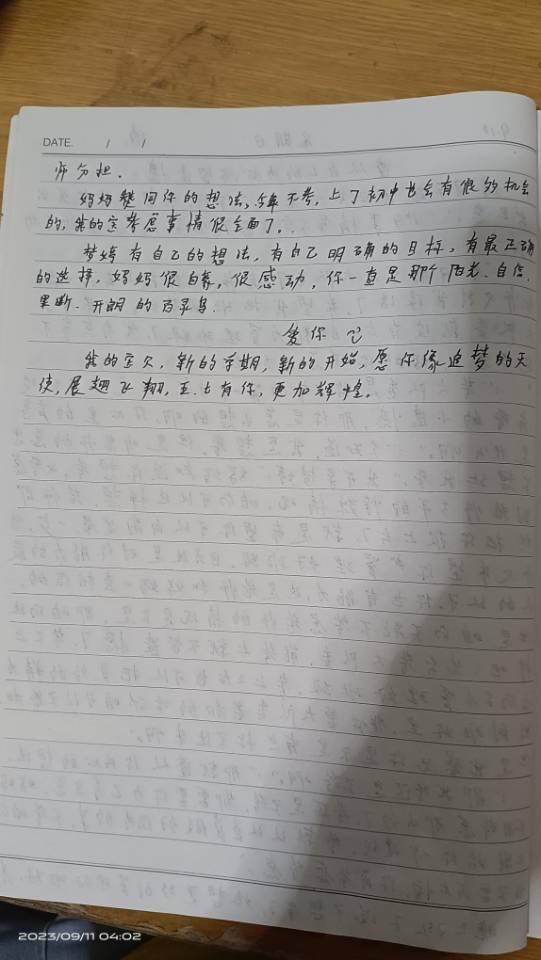 DATE. / /
师分担.
妈妈赞同你的想法,不考,上了初中也会有很多机会
的,我的宝考虑事情很全面了.
梦婷有自己的想法,有自己明确的目标,有最正确
的选择,妈妈很自豪,很感动,你一直是那个阳光.自信.
果断.开朗的百灵鸟.
爱你
我的宝贝,新的学期,新的开始,愿你像追梦的天
使,展翅飞翔,五七有你,更加辉煌.
2023/09/11 04:02